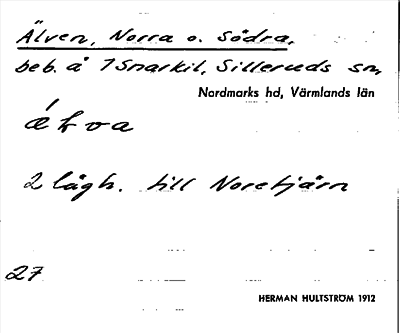 Älven, Norra o. Södra,
beb. å 1 Snarkil, Silleruds sn,
Nordmarks hd, Värmlands län
2 lägh. till Noretjärn
27
HERMAN HULTSTRÖM 1912